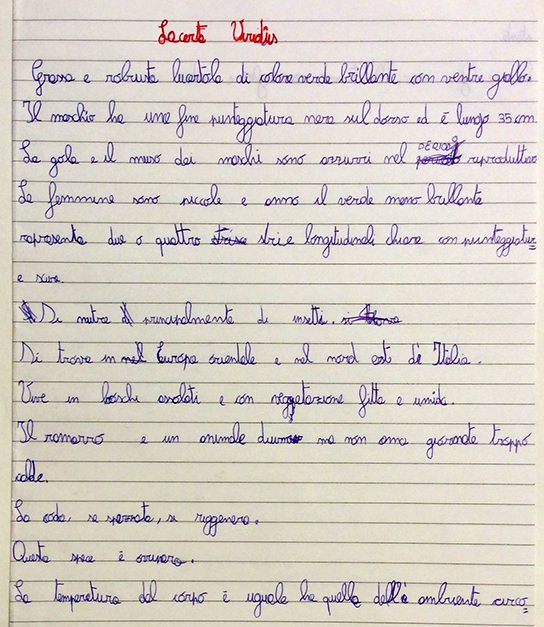 Lacerta Viridis
Grossa e robusta luertola di colore verde brillante con ventre giallo.
Il maschio ha une fine punteggiatura nera sul dorso ed è lungo 35 cm
La gola e il muso dai maschi sono azzurri nel PERIODO riproduttivo
Le femmine sono piccole e anno il verde meno brillante
rapresenta due o quattro strie longitudinali chiare con punteggiatur=
e scure.
Di nutre principalmente di insetti.
Di trova in Europa orientale e nel nord est di Italia.
Vive in boschi assolati e con reggetazione fitta e umida.
Il ramarro e un animale diurno ma non ama giornate troppo
calde.
La coda, se spezzata, se riggenera.
Questa spece è oviparo.
La temperatura del corpo è uguale ha quella dell'è ambiente circo=